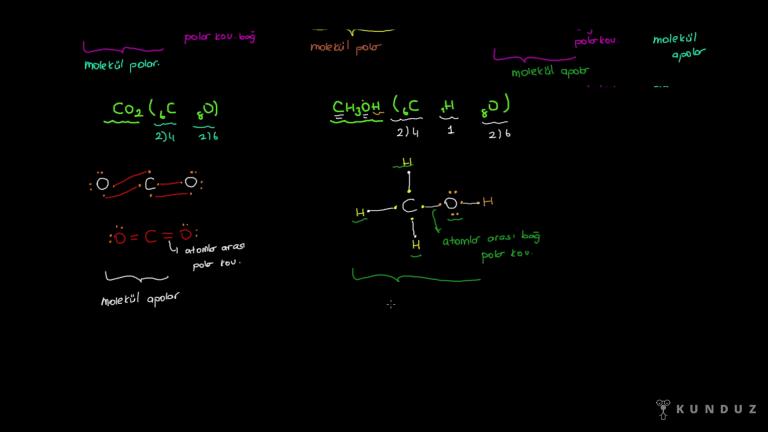 polar kov. bağ
molekül polar.
molekül polar
polar kov.
molekül apolar
molekül
apolar
CO2 (6C 8O)
2)4 2)6
CH3OH (6C 1H 8O)
2)4 1 2)6
O C O
O = C = O
atomlar arası
polar kov.
molekül apolar
H
H C O H
H
atomlar arası bağ
polar kov.
KUNDUZ